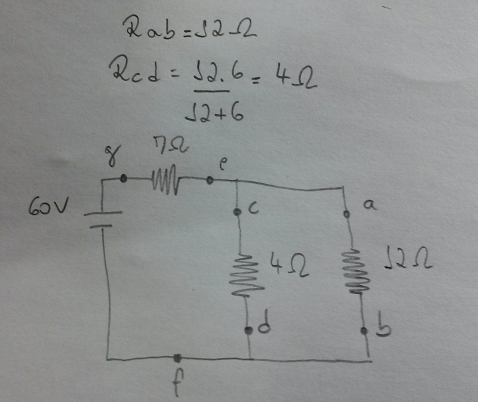 Rab = 12Ω
Rcd = 12.6 = 4Ω
12+6
7Ω
g
e
60V
c
a
4Ω
12Ω
d
b
f